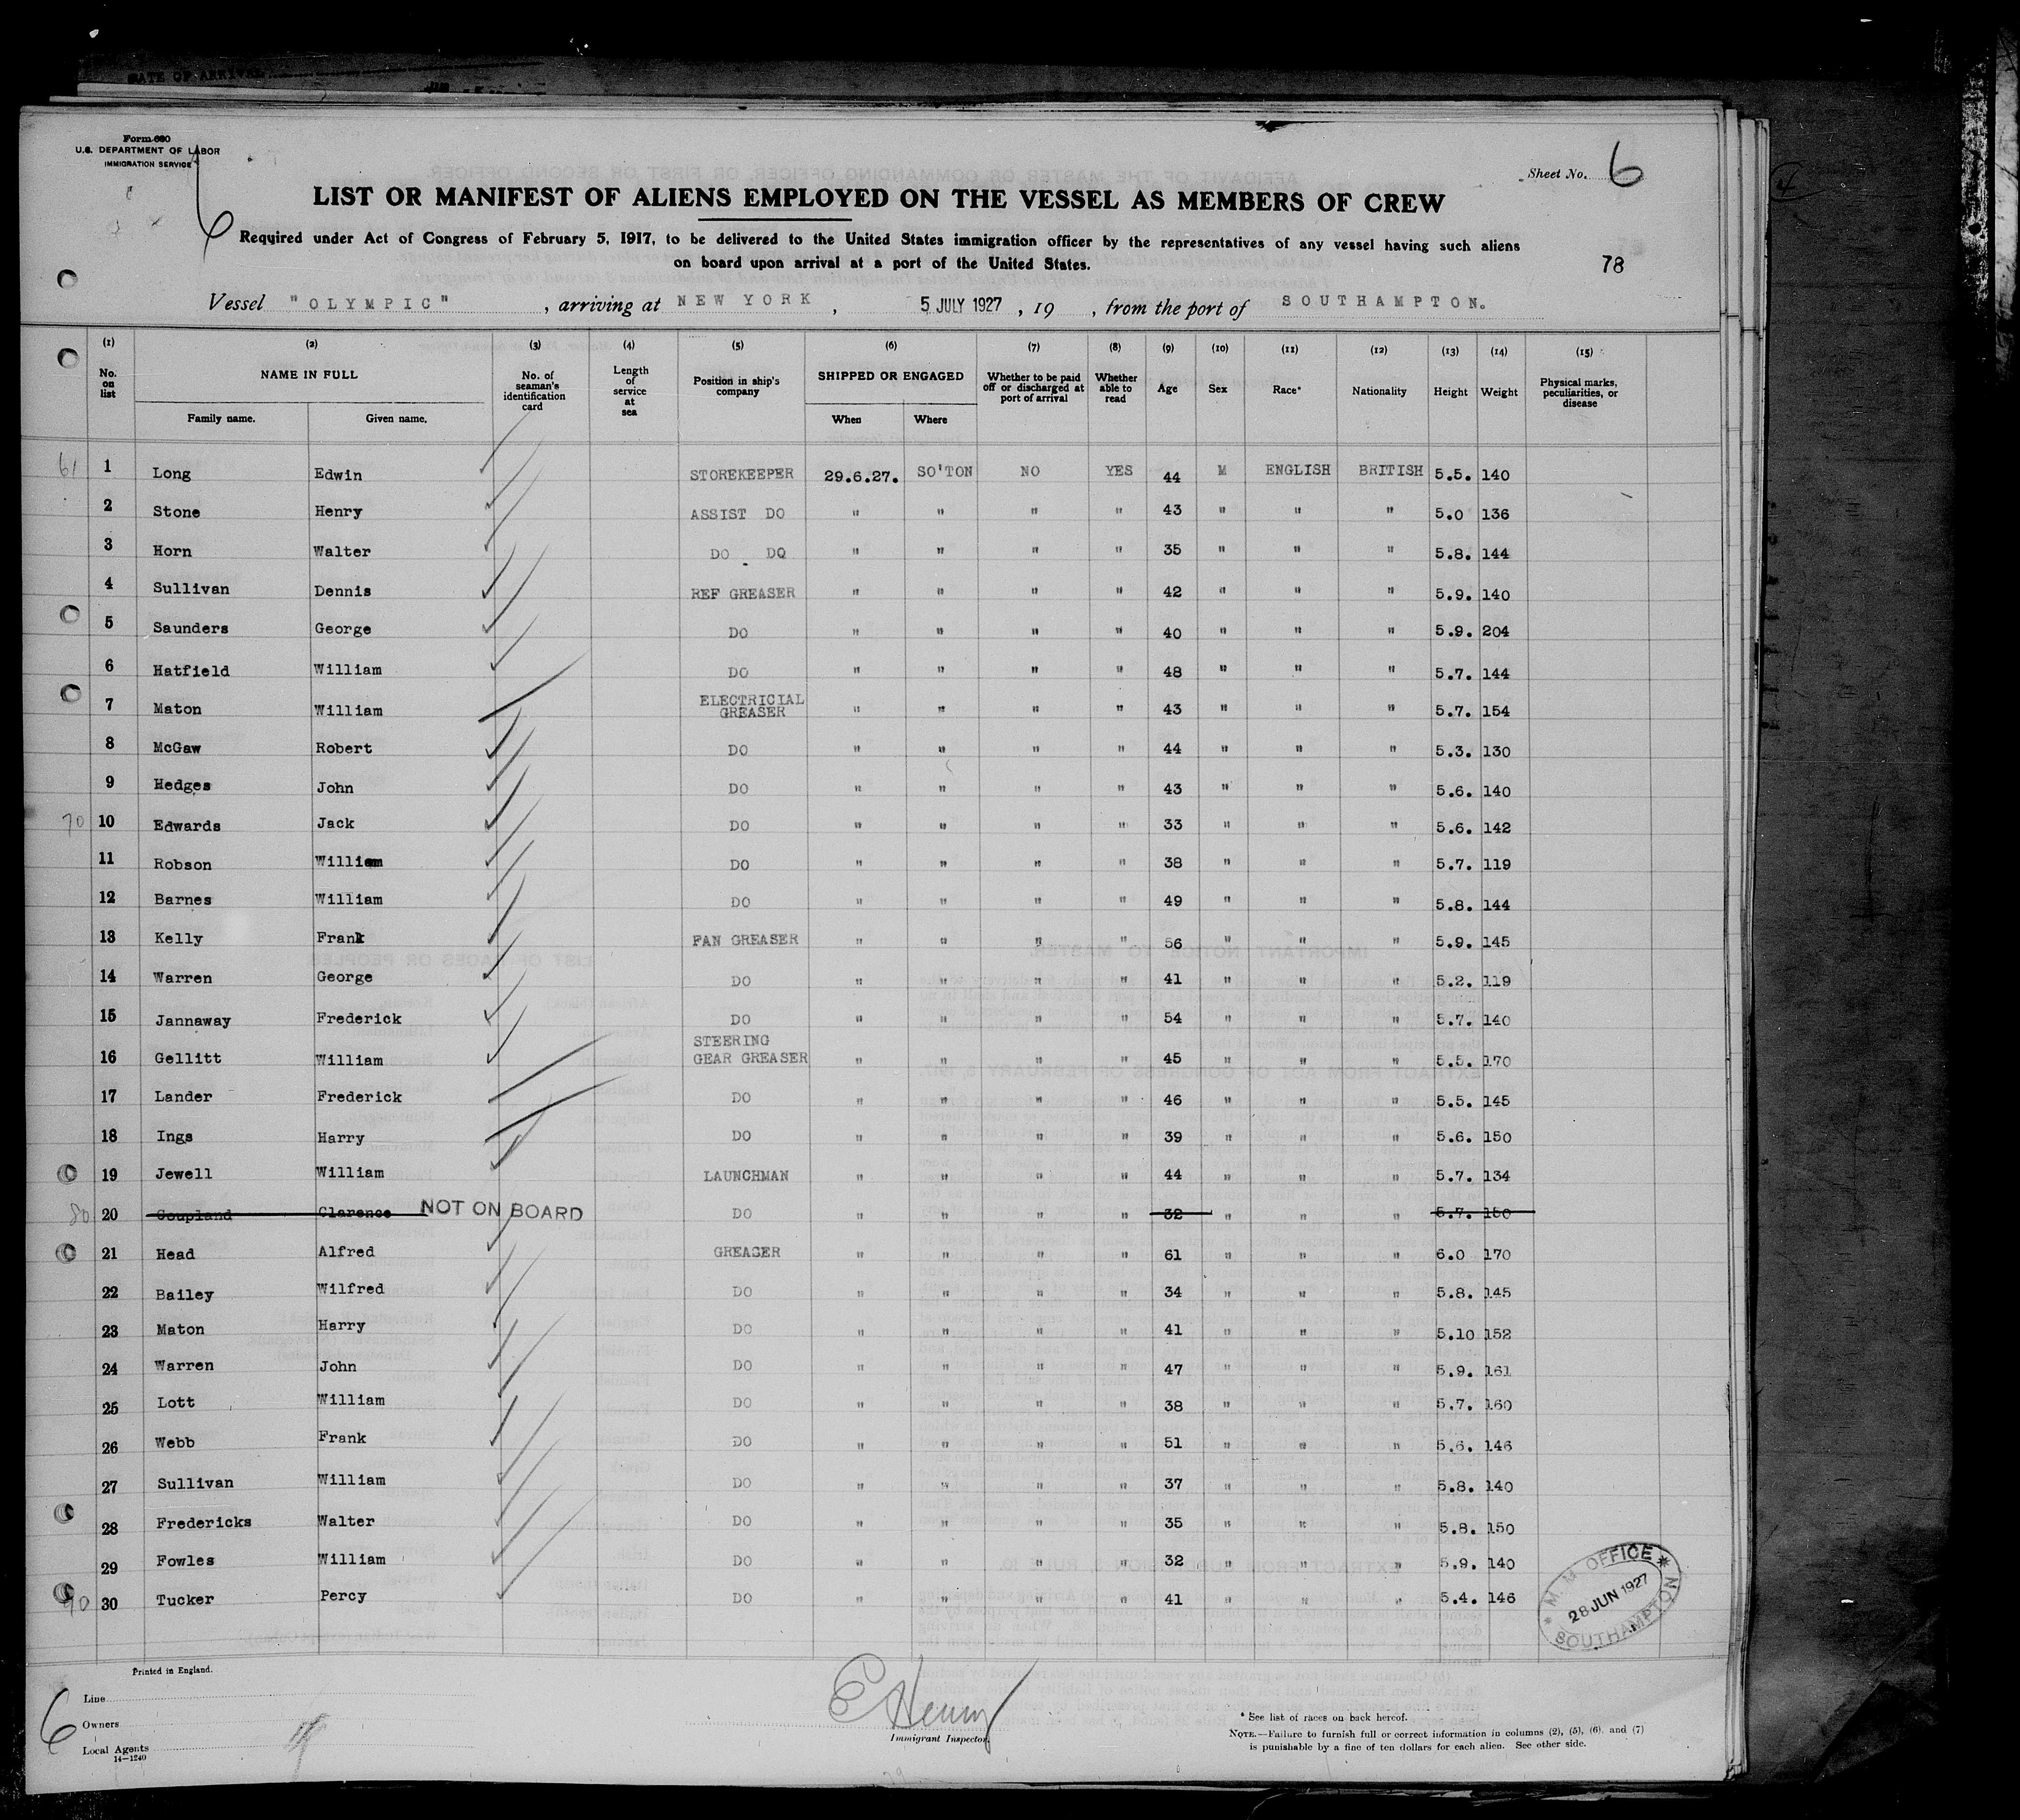 DATE OF ARRIVAL
Form 680
U.S. DEPARTMENT OF LABOR
IMMIGRATION SERVICE
6
Sheet No. 6
LIST OR MANIFEST OF ALIENS EMPLOYED ON THE VESSEL AS MEMBERS OF CREW
Required under Act of Congress of February 5, 1917, to be delivered to the United States immigration officer by the representatives of any vessel having such aliens
on board upon arrival at a port of the United States.
78
Vessel "OLYMPIC", arriving at NEW YORK, 5 JULY 1927, 19 , from the port of SOUTHAMPTON.
(1) (2) (3) (4) (5) (6) (7) (8) (9) (10) (11) (12) (13) (14) (15)
No. on list NAME IN FULL Family name. Given name. No. of seaman's identification card Length of service at sea Position in ship's company SHIPPED OR ENGAGED When Where Whether to be paid off or discharged at port of arrival Whether able to read Age Sex Race* Nationality Height Weight Physical marks, peculiarities, or disease
61 1 Long Edwin STOREKEEPER 29.6.27. SO'TON NO YES 44 M ENGLISH BRITISH 5.5. 140
2 Stone Henry ASSIST DO " " " " 43 " " " 5.0 136
3 Horn Walter DO DO " " " " 35 " " " 5.8. 144
4 Sullivan Dennis REF GREASER " " " " 42 " " " 5.9. 140
5 Saunders George DO " " " " 40 " " " 5.9. 204
6 Hatfield William DO " " " " 48 " " " 5.7. 144
7 Maton William ELECTRICIAL GREASER " " " " 43 " " " 5.7. 154
8 McGaw Robert DO " " " " 44 " " " 5.3. 130
9 Hedges John DO " " " " 43 " " " 5.6. 140
70 10 Edwards Jack DO " " " " 33 " " " 5.6. 142
11 Robson William DO " " " " 38 " " " 5.7. 119
12 Barnes William DO " " " " 49 " " " 5.8. 144
13 Kelly Frank FAN GREASER " " " " 56 " " " 5.9. 145
14 Warren George DO " " " " 41 " " " 5.2. 119
15 Jannaway Frederick DO " " " " 54 " " " 5.7. 140
16 Gellitt William STEERING GEAR GREASER " " " " 45 " " " 5.5. 170
17 Lander Frederick DO " " " " 46 " " " 5.5. 145
18 Ings Harry DO " " " " 39 " " " 5.6. 150
19 Jewell William LAUNCHMAN " " " " 44 " " " 5.7. 134
80 20 Coupland Clarence NOT ON BOARD DO " " " " 32 " " " 5.7. 150
21 Head Alfred GREASER " " " " 61 " " " 6.0 170
22 Bailey Wilfred DO " " " " 34 " " " 5.8. 145
23 Maton Harry DO " " " " 41 " " " 5.10 152
24 Warren John DO " " " " 47 " " " 5.9. 161
25 Lott William DO " " " " 38 " " " 5.7. 160
26 Webb Frank DO " " " " 51 " " " 5.6. 146
27 Sullivan William DO " " " " 37 " " " 5.8. 140
28 Fredericks Walter DO " " " " 35 " " " 5.8. 150
29 Fowles William DO " " " " 32 " " " 5.9. 140
90 30 Tucker Percy DO " " " " 41 " " " 5.4. 146
M.M OFFICE
28 JUN 1927
SOUTHAMPTON
Printed in England.
6
Line
Owners
Local Agents
14—1240
E Henry
Immigrant Inspector.
* See list of races on back hereof.
NOTE.—Failure to furnish full or correct information in columns (2), (5), (6), and (7)
is punishable by a fine of ten dollars for each alien. See other side.